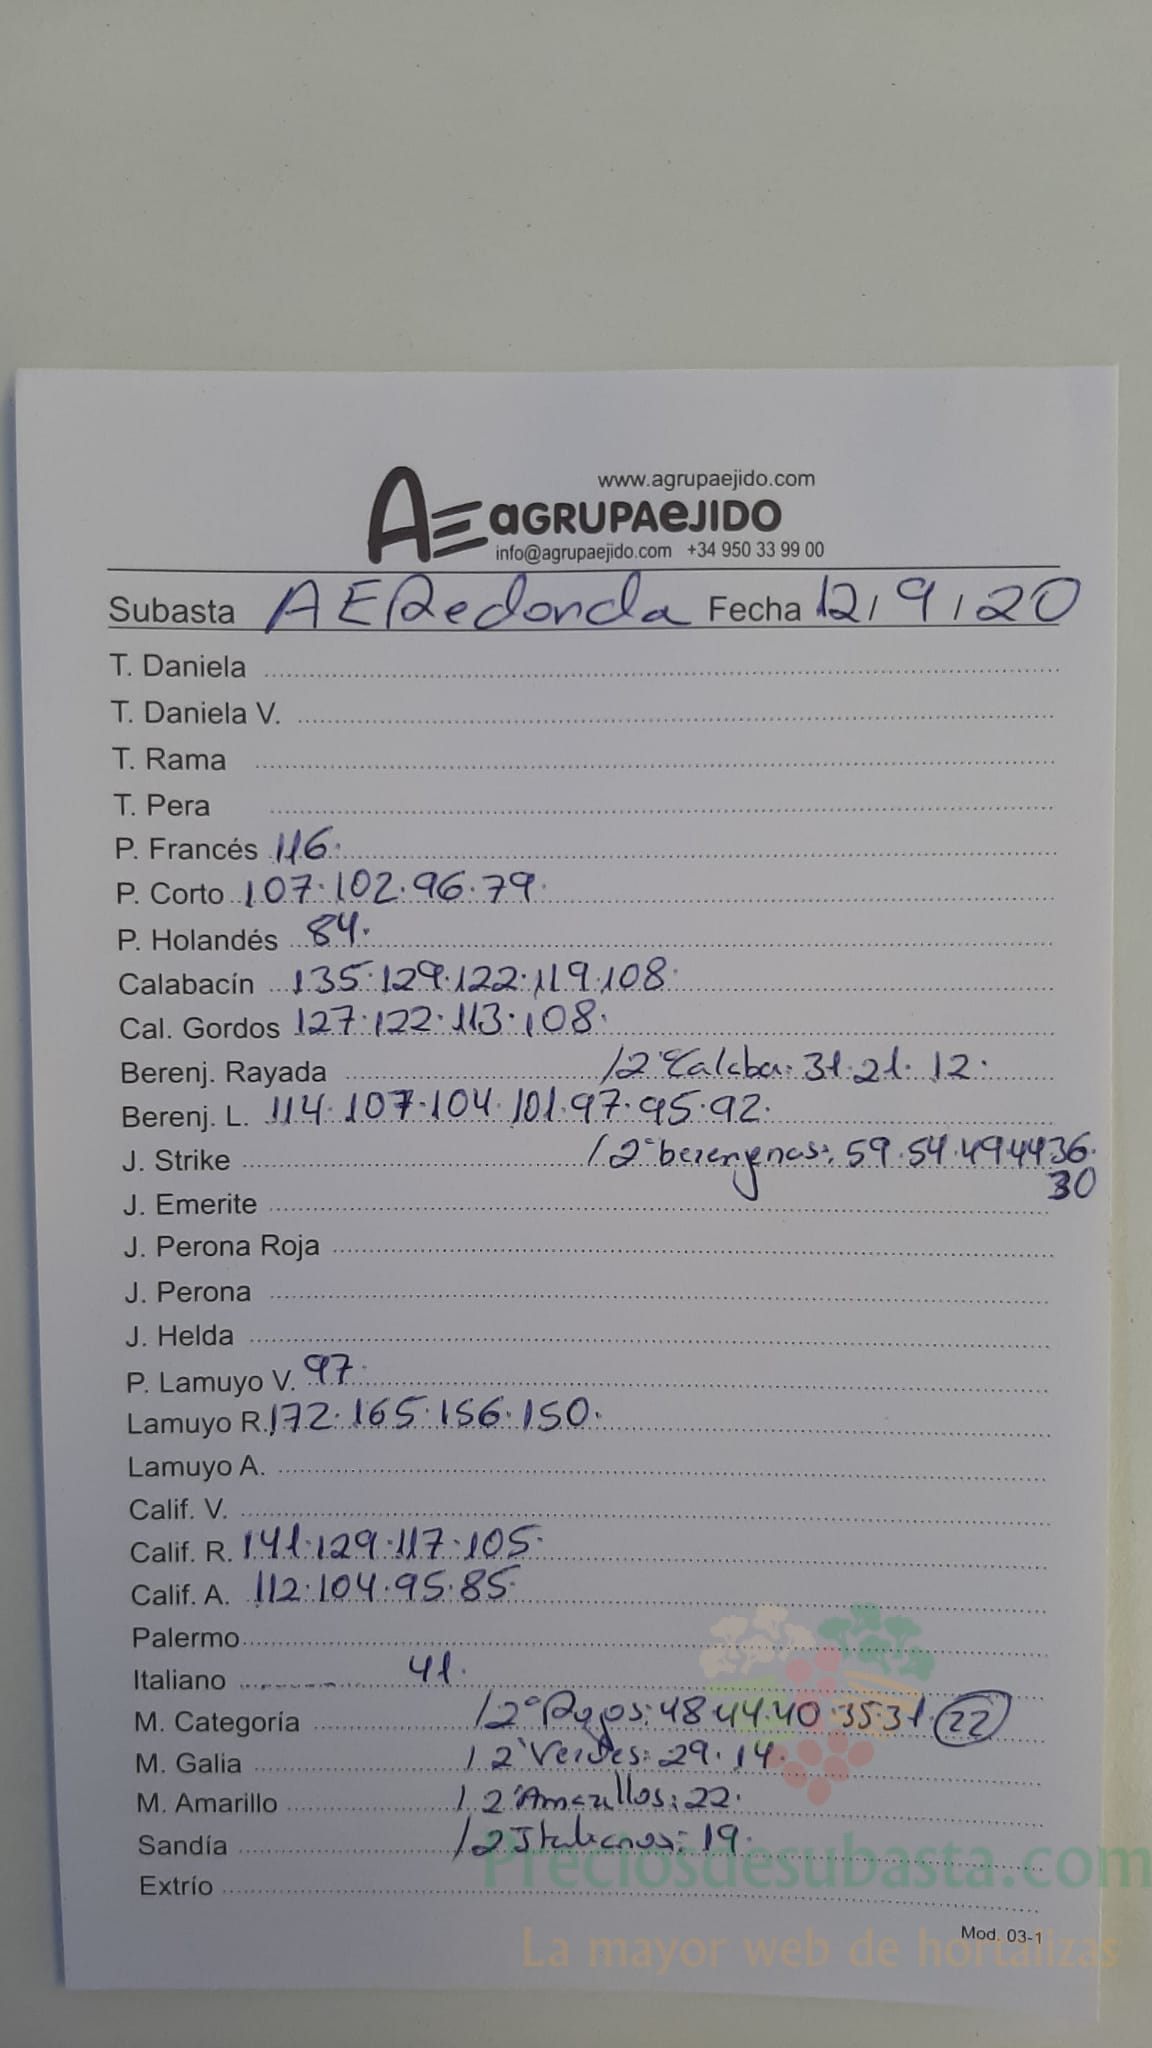 www.agrupaejido.com
AE aGRUPAeJIDO
info@agrupaejido.com +34 950 33 99 00
Subasta AE Redonda Fecha 12/9/20
T. Daniela
T. Daniela V.
T. Rama
T. Pera
P. Francés 116.
P. Corto 107.102.96.79.
P. Holandés 84.
Calabacín 135.129.122.119.108.
Cal. Gordos 127.122.113.108.
Berenj. Rayada /2ª Calaba: 31.21.12.
Berenj. L. 114.107.104.101.97.95.92.
J. Strike /2ª berenjenas: 59.54.49.44.36.
30
J. Emerite
J. Perona Roja
J. Perona
J. Helda
P. Lamuyo V. 97.
Lamuyo R. 172.165.156.150.
Lamuyo A.
Calif. V.
Calif. R. 141.129.117.105.
Calif. A. 112.104.95.85.
Palermo
Italiano 41.
M. Categoría /2º Rojos: 48.44.40.35.31. 22
M. Galia /2º Verdes: 29.14.
M. Amarillo /2º Amarillos: 22.
Sandía /2 Italianos: 19.
Preciosdesubasta.com
Extrío
Mod. 03-1
La mayor web de hortalizas